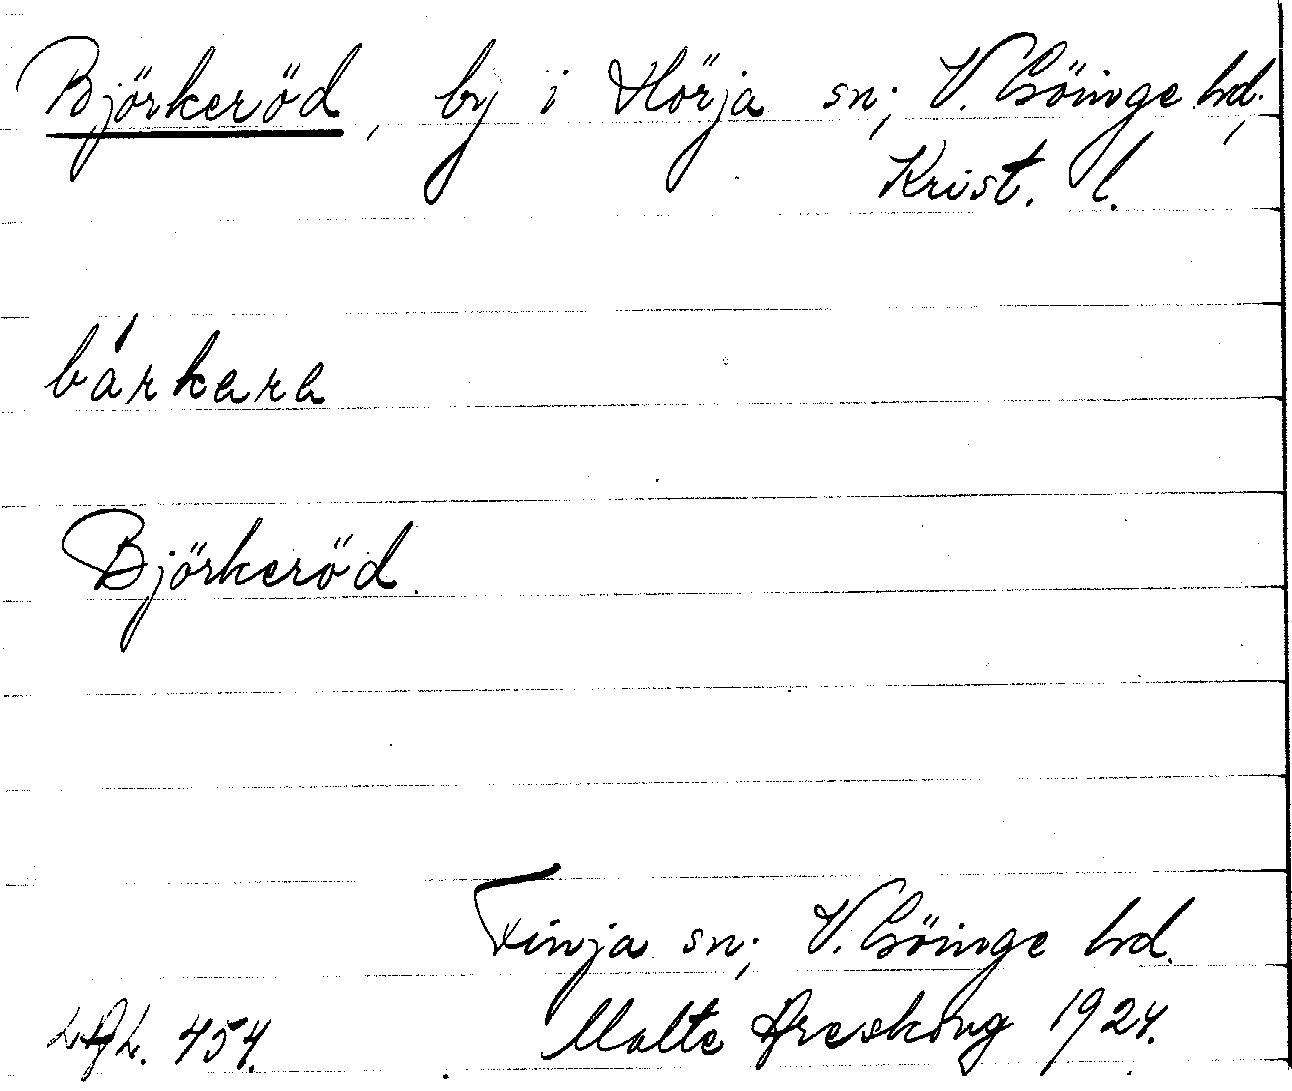 Björkeröd, by i Hörja sn; V. Göinge hd.,
Krist. l.
bárkara
Björkeröd.
Finja sn; V. Göinge hd.
454. Malte Areskoug 1924.